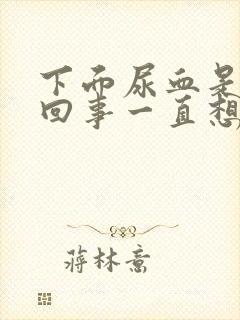 下面尿血是
回事一直想
蒋林意